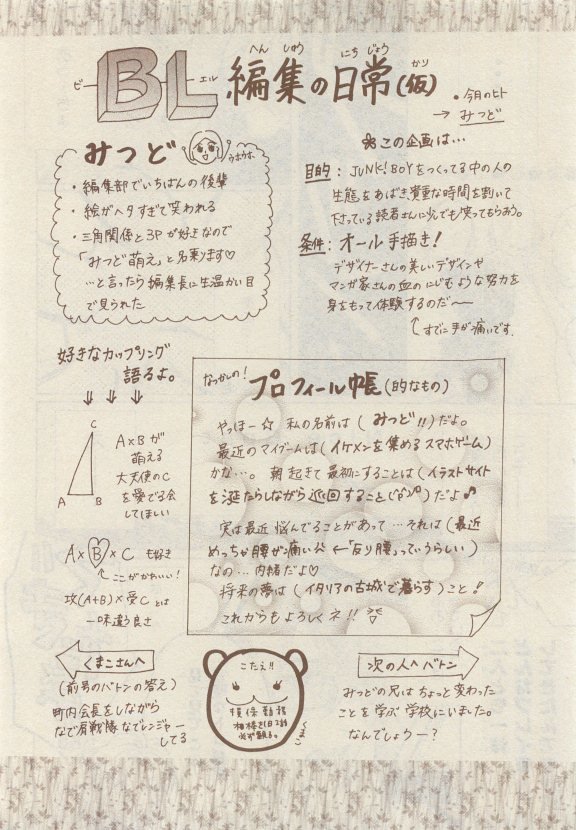 BL編集の日常(仮)
ビー エル へんしゅう にちじょう かり
・今月のヒト
→ みつど
みつど
ウホウホ
・編集部でいちばんの後輩
・絵がヘタすぎて笑われる
・三角関係と3Pが好きなので
「みつど萌え」と名乗ります♡
…と言ったら編集長に生温かい目
で見られた
❀この企画は…
目的: JUNK!BOYをつくってる中の人の
生態をあばき貴重な時間を割いて
下さっている読者さんに少しでも笑ってもらおう。
条件: オール手描き!
デザイナーさんの美しいデザインや
マンガ家さんの血のにじむような努力を
身をもって体験するのだ〜
↑すでに手が痛いです。
好きなカップリング
語るよ。
⇓ ⇓ ⇓
C
A B
A×Bが
萌える
大天使のC
を愛でる会
してほしい
A×B×C も好き
↑ここがかわいい!
攻(A+B)×受C とは
一味違う良さ
なつかしの!
プロフィール帳(的なもの)
やっほー☆ 私の名前は(みつど!!)だよ。
最近のマイブームは(イケメンを集めるスマホゲーム)
かな…。朝起きて最初にすることは(イラストサイト
を涎たらしながら巡回すること)だよ♪
実は最近悩んでることがあって…それは(最近
めっちゃ腰が痛い ←「反り腰」っていうらしい)
なの…内緒だよ♡
将来の夢は(イタリアの古城で暮らす)こと!
これからもよろしくネ!!
くまこさんへ
(前号のバトンの答え)
町内会長をしながら
なで肩戦隊なでレンジャー
してる
こたえ!!
くまこ
次の人へバトン
みつどの兄はちょっと変わった
ことを学ぶ学校にいました。
なんでしょうー?